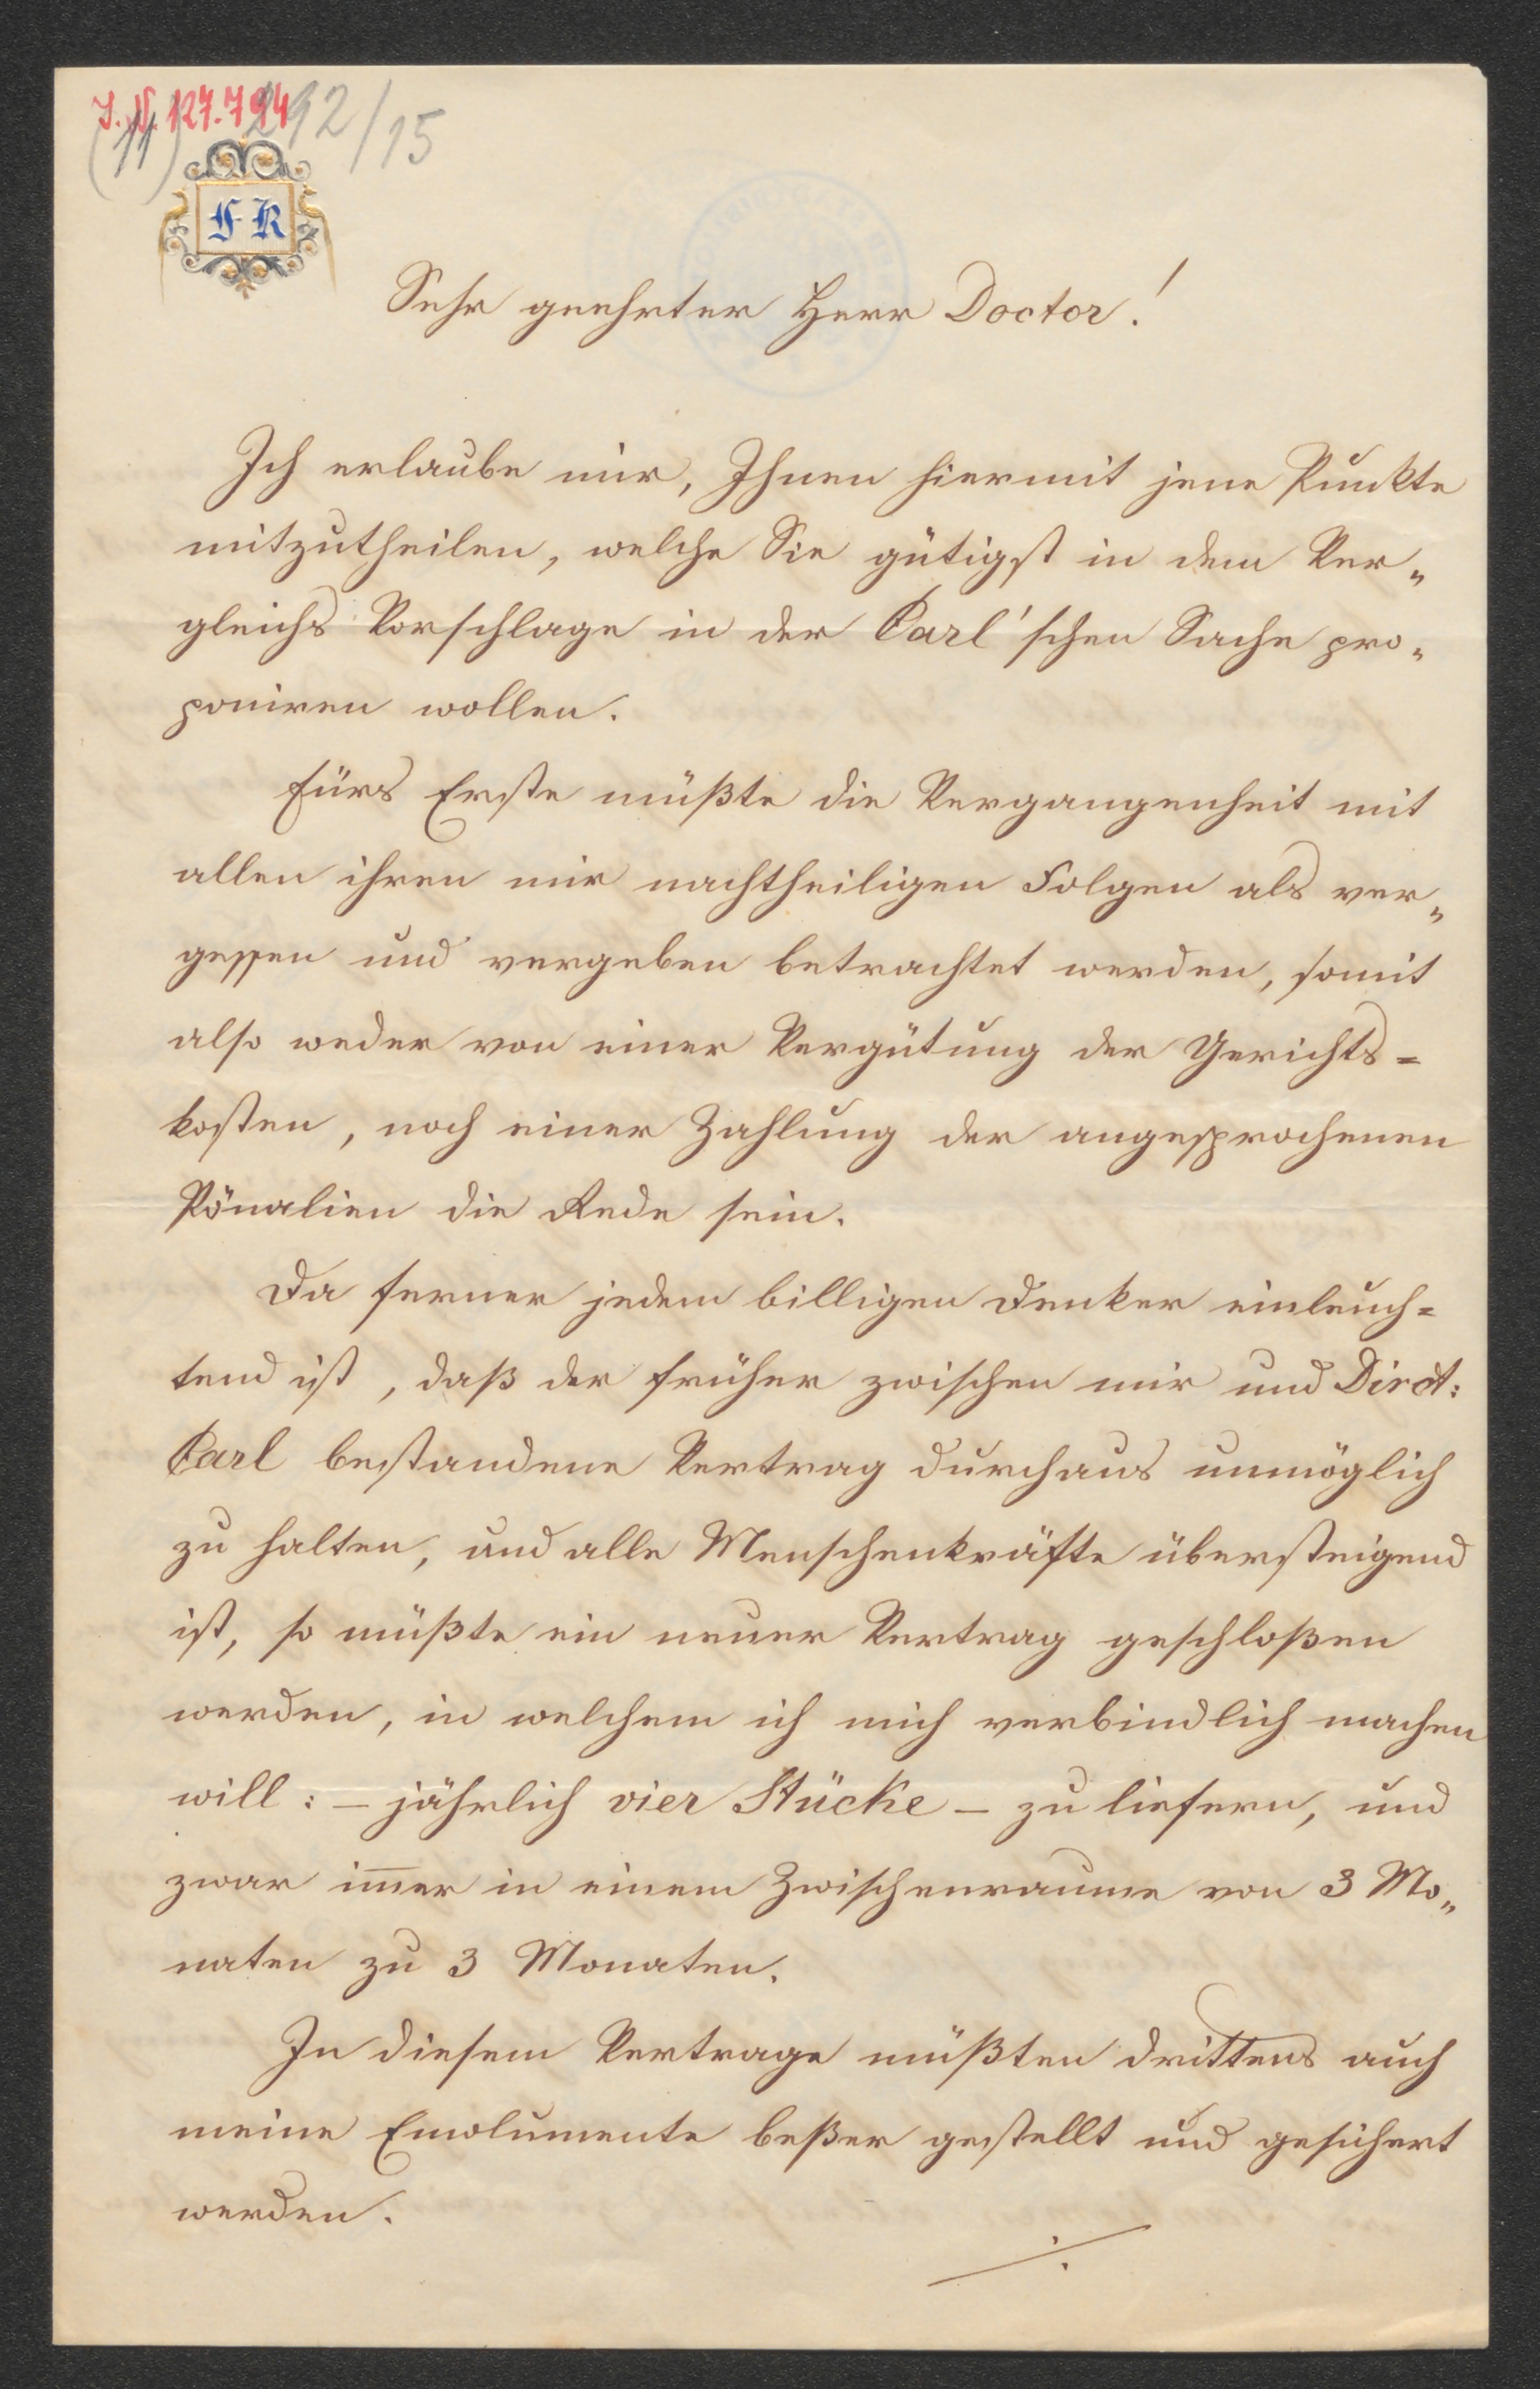 J. N. 127.794
(11) 292/15
F K
Sehr geehrter Herr Doctor!
Ich erlaube mir, Ihnen hiermit jene Punkte
mitzutheilen, welche Sie gütigst in dem Ver„
gleichs Vorschlage in der Carl'schen Sache pro„
poniren wollen.
Fürs Erste müßte die Vergangenheit mit
allen ihren mir nachtheiligen Folgen als ver„
gessen und vergeben betrachtet werden, somit
also weder von einer Vergütung der Gerichts=
kosten, noch einer Zahlung der angesprochenen
Pönalien die Rede sein.
Da ferner jedem billigen Denker einleuch=
tend ist, daß der früher zwischen mir und Direct:
Carl bestandene Vertrag durchaus unmöglich
zu halten, und alle Menschenkräfte übersteigend
ist, so müßte ein neuer Vertrag geschloßen
werden, in welchem ich mich verbindlich machen
will: – jährlich vier Stücke – zu liefern, und
zwar im̅er in einem Zwischenraume von 3 Mo„
naten zu 3 Monaten.
In diesem Vertrage müßten drittens auch
meine Emolumente beßer gestellt und gesichert
werden.